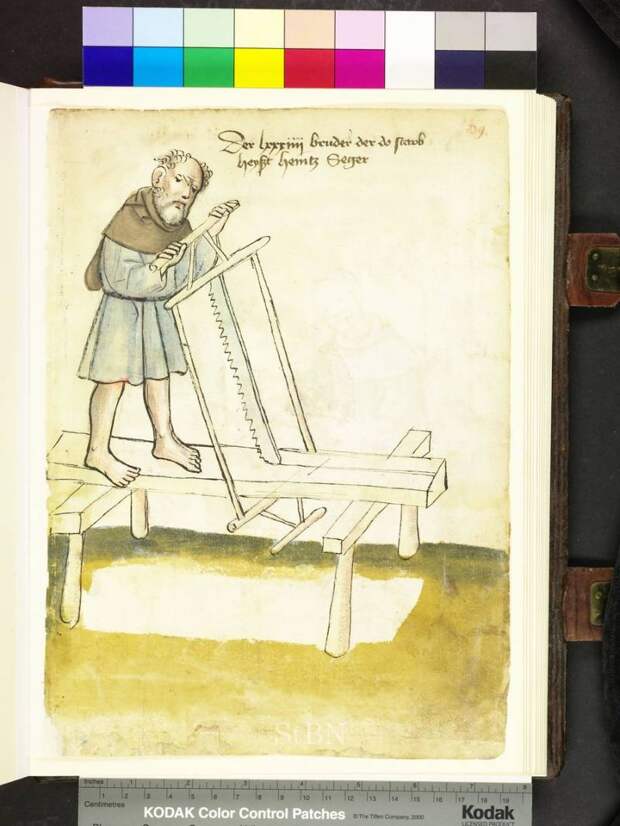 Der lxxxiiii bruder der do starb
heyst heintz Seger
StBN
Inches 1 2 3 4 5 6 7 8
Centimetres 1 2 3 4 5 6 7 8 9 10 11 12 13 14 15 16 17 18 19
KODAK Color Control Patches © The Tiffen Company, 2000 Kodak
LICENSED PRODUCT